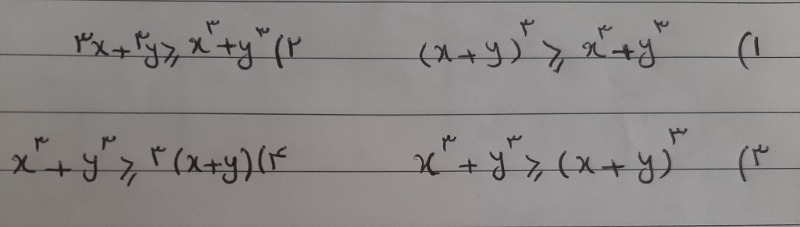 (x+y)^۳ ≥ x^۳+y^۳ (۱ ۳x+۳y ≥ x^۳+y^۳ (۲
x^۳+y^۳ ≥ (x+y)^۳ (۳ x^۳+y^۳ ≥ ۳(x+y) (۴